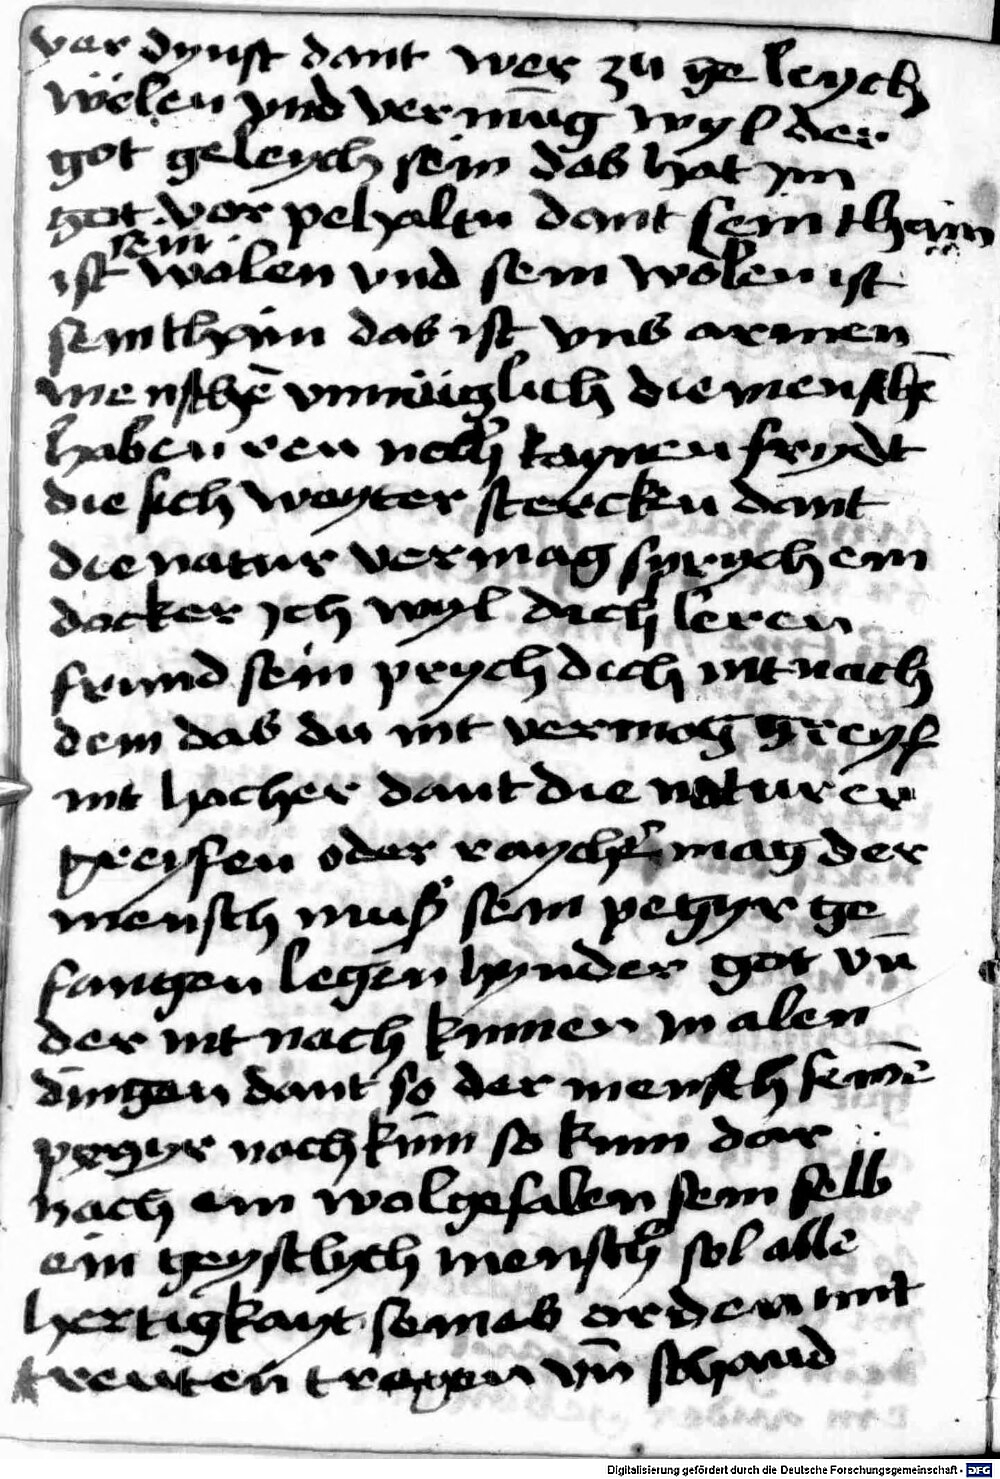 ver dynst dant wer zu ge leych
wëlen vnd vermüg wyl der
got geleych sein das hat jm
got vor pehaltn dant sein thain
sein
ist wolen vnd sein wolen ist
sein thain das ist vns armen
menschē vnmüglich die menschē
haben ren noch kaynen frydt
die sich weyter sterckn dant
die natur vermag sprych ein
docker ich wyl dich leren
frund sein prych dich nit nach
dem das du nit vermog greyf
nit hocher dant die natur er
greyfen oder raychē mag der
mensch muß sein pegyr ge
fangen legen hynder got vn̄
der nit nach kumen in alen
dingen dant so der mensch seinē
pegyr noch kum so kum dar
nach ein wolgefalen sein selb
ein geystlych mensch sol alle
hertigkayt seines orden mit
freuten tragen vn̄ schand
Digitalisierung gefördert durch die Deutsche Forschungsgemeinschaft - DFG